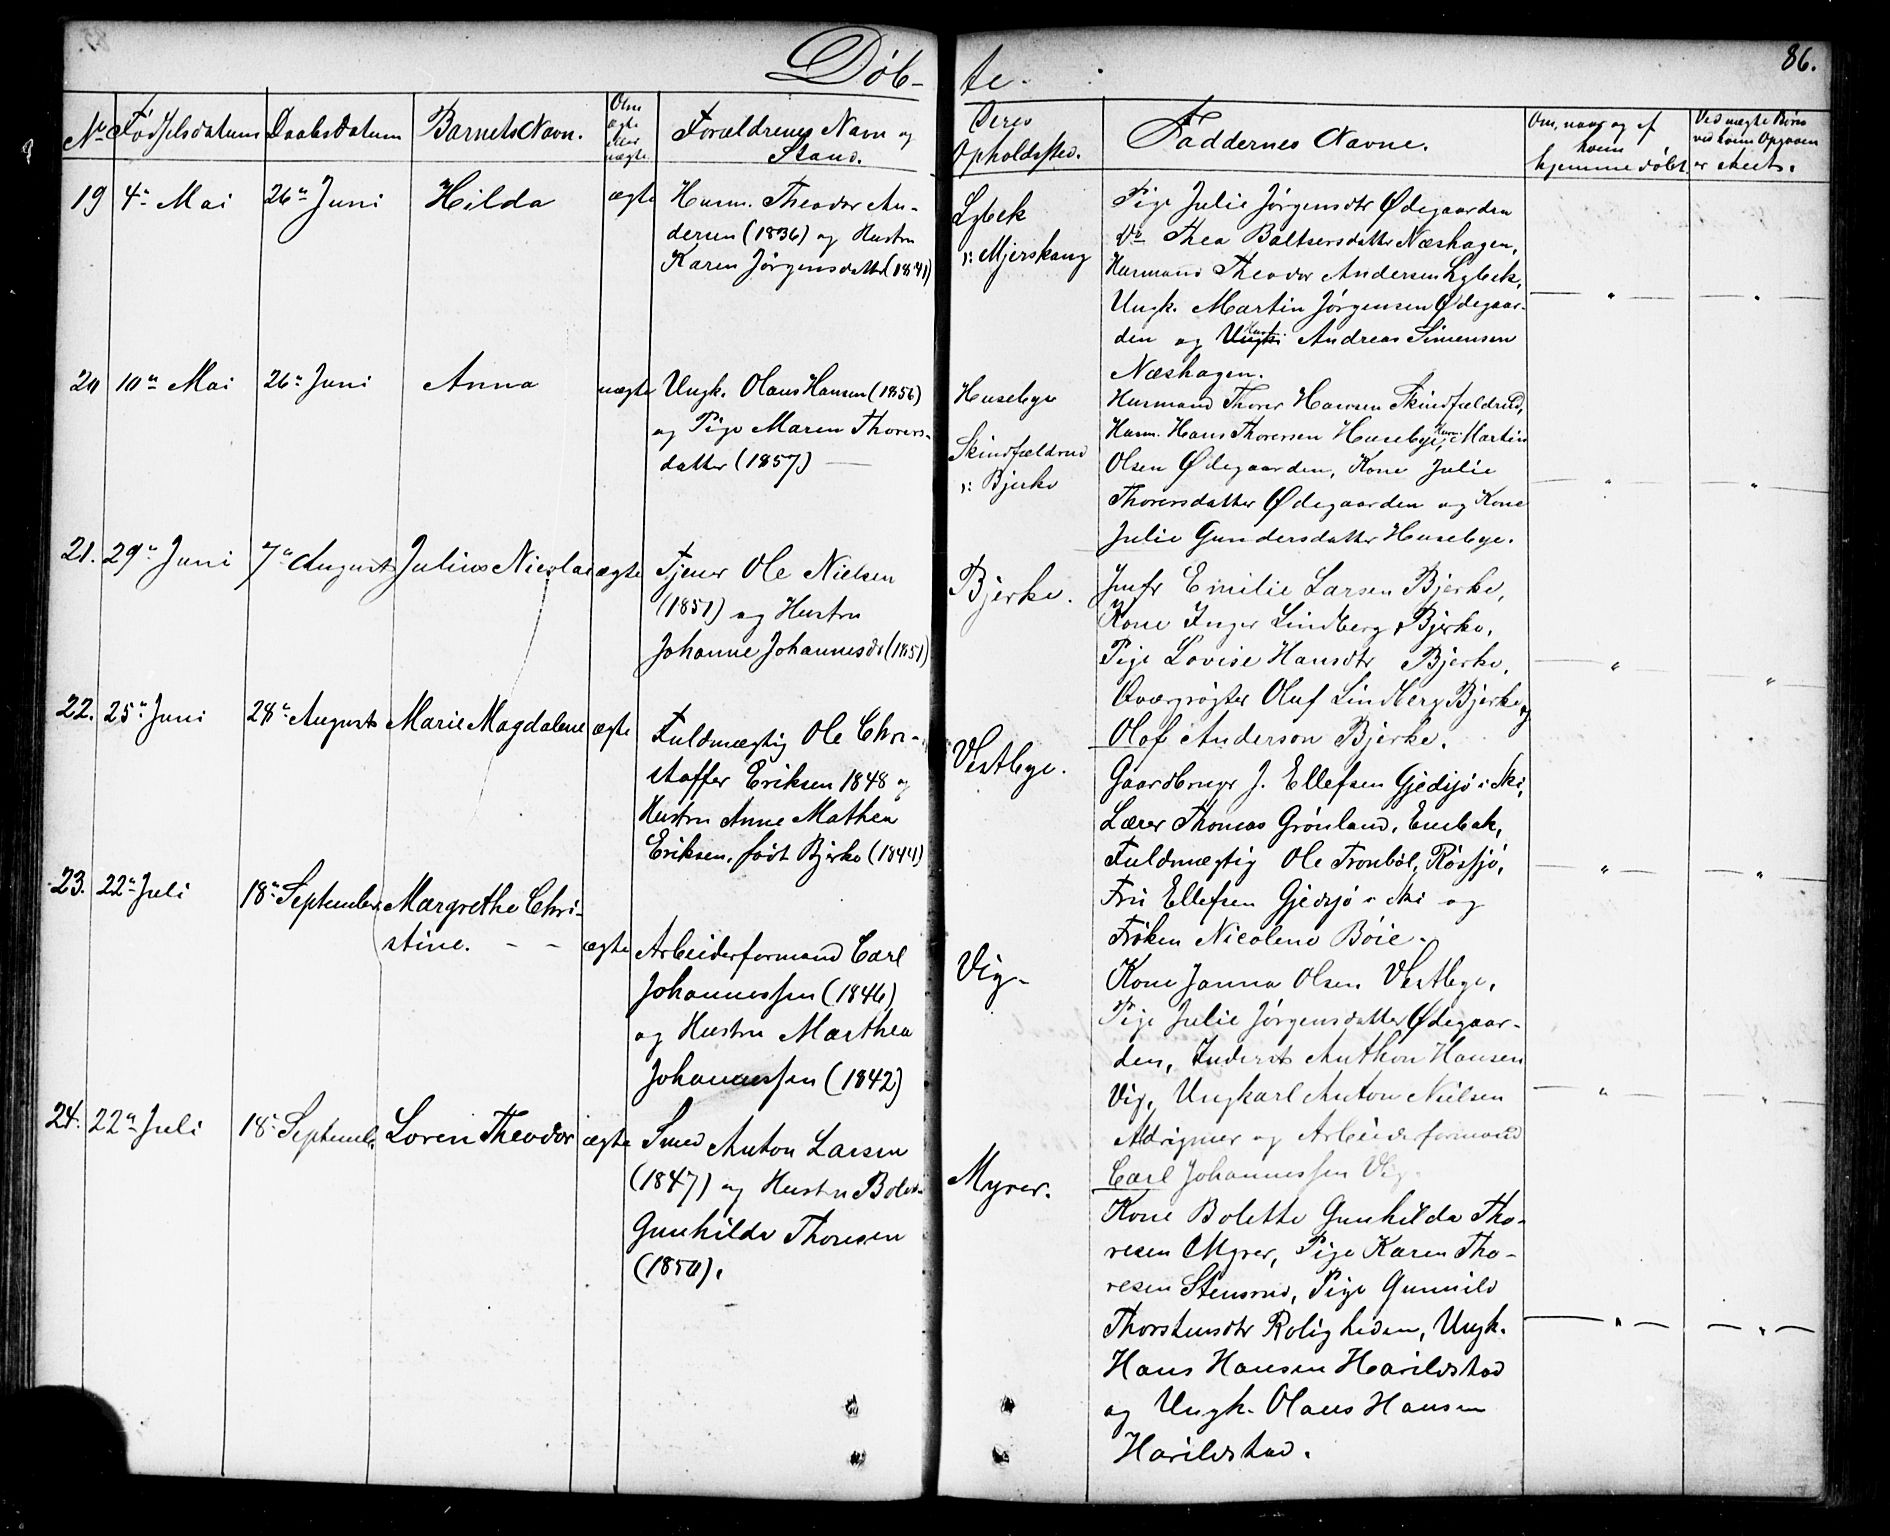 Döb-
te.
86.
No
Fødselsdatum
Daabsdatum
Barnets Navn.
Om
ægte
eller
uægte
Forældrenes Navn og
Stand.
Deres
Opholdssted.
Faddernes Navne.
Om, naar og af
hvem
hjemmedöbt.
Ved uægte Börn
ved hvem Opgaven
er skeet.
19
4de Mai
26de Juni
Hilda
ægte
Husm. Theodor An-
dersen (1836) og Hustru
Karen Jørgensdatter (1841)
Lybek
v: Mjerskaug
Pige Julie Jörgensdtr Ødegaarden
Do Thea Baltsersdatter Næshagen,
Husmand Theodor Andersen Lybek,
Ungk. Martin Jörgensen Ødegaar-
den og Husm. Andreas Simensen
Næshagen.
20
10de Mai
26de Juni
Anna
uægte
Ungk. Olaus Hansen (1856)
og Pige Maren Thorers-
datter (1857)
Husebye
Skindfældrud
v: Bjerke
Husmand Thorer Hansen Skindfældrud,
Husm. Hans Thoresen Husebye, Husm. Martin
Olsen Ødegaarden, Kone Julie
Thorersdatter Ødegaarden og Kone
Julie Gundersdatter Husebye.
21.
29de Juni
7de August
Julius Nicolai
ægte
Tjener Ole Nielsen
(1851) og Hustru
Johanne Johannesd. (1851)
Bjerke.
Jmfr Emilie Larsen Bjerke,
Kone Inger Lindberg Bjerke,
Pige Lovise Hansdtr Bjerke,
Qvægrøgter Oluf Lindberg Bjerke og
Olof Anderson Bjerke.
22.
25de Juni
28de August
Marie Magdalene
ægte
Fuldmægtig Ole Chri-
stoffer Eriksen 1848 og
Hustru Anne Mathea
Eriksen, født Bjerke (1844)
Vestbye.
Gaardbruger J. Ellefsen Gjedsjö i Ski,
Lærer Thomas Grönland, Enebak,
Fuldmægtig Ole Tronböl, Rössjö,
Fru Ellefsen Gjedsjö i Ski og
Fröken Nicoline Böie.
23.
22de Juli
18de September
Margrethe Chri-
stine.
ægte
Arbeiderformand Carl
Johannessen (1846)
og Hustru Marthea
Johannessen (1842)
Vig.
Kone Janna Olsen Vestbye,
Pige Julie Jörgensdatter Ødegaar-
den, Inderst Anthon Hansen
Vig, Ungkarl Anton Nielsen
og Arbeiderformand
Carl Johannessen Vig.
24.
22de Juli
18de Septemb.
Loren Theodor
ægte
Smed Anton Larsen
(1847) og Hustru Bolette
Gunhilde Thoresen
(1850).
Myrer.
Kone Bolette Gunhilda Tho-
resen Myrer, Pige Karen Tho-
resen Stensrud, Pige Gunnild
Thorstensdtr Roligheden, Ungk.
Hans Hansen Harildstad
og Ungk. Olaus Hansen
Harildstad.